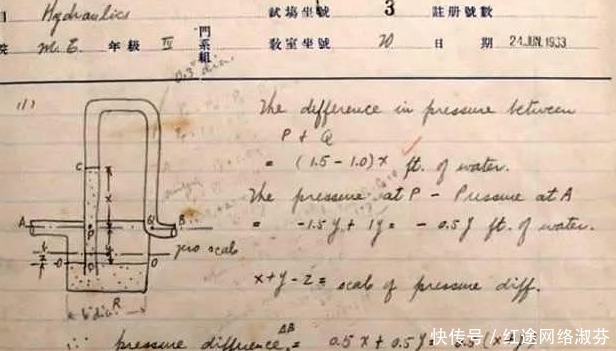 目 Hydraulics 試場坐號 3 註册號數
院 M.E. 年級 IV 門系組 教室坐號 70 日期 24 JUN. 1933
(1)
0.3" dia.
The difference in pressure between
P + Q
= (1.5 - 1.0) x ft. of water.
The pressure at P - Pressure at A
= -1.5 y + 1 y = - 0.5 y ft. of water.
x + y - z = scale of pressure diff.
C
x
A
P
Q
B
y
zero scale
z
O
O
R
6" dia.
∴ pressure difference AB = 0.5 x + 0.5 y = 0.5 (x + y)
快传号/红途网络淑芬